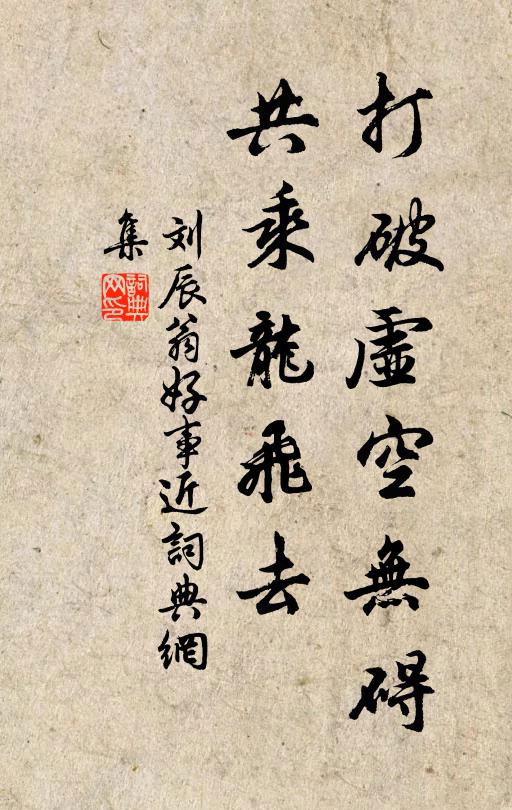 打破虛空無碍
共乘龍飛去
刘辰翁好事近詞典網
集
詞典
网印